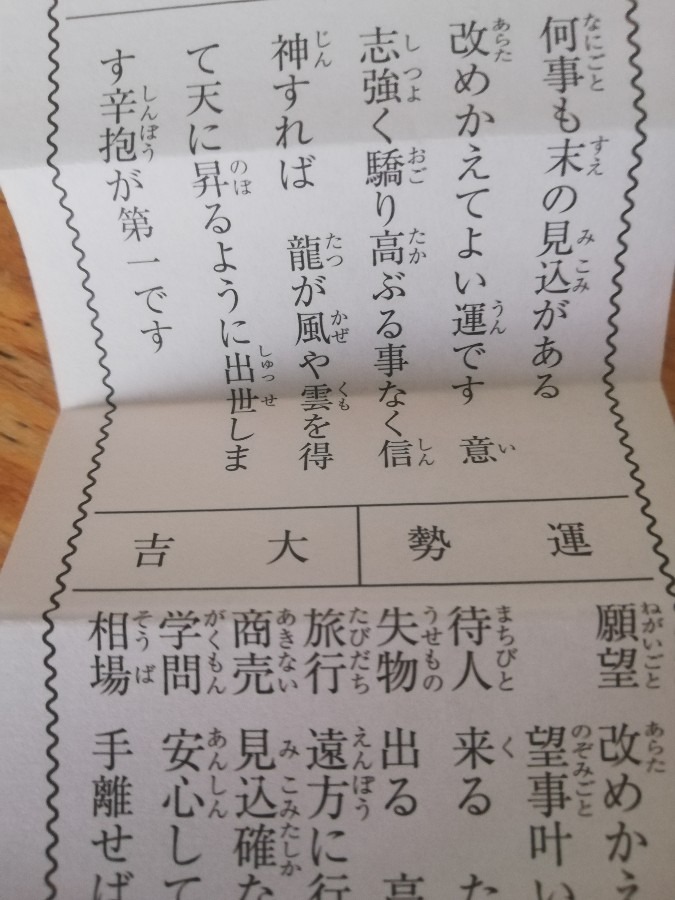 何事も末の見込がある
改めかえてよい運です　意
志強く驕り高ぶる事なく信
神すれば　龍が風や雲を得
て天に昇るように出世しま
す辛抱が第一です
運勢　大吉
願望　改めかえ
望事叶い
待人　来る　た
失物　出る　高
旅行　遠方に行
商売　見込確な
学問　安心して
相場　手離せば